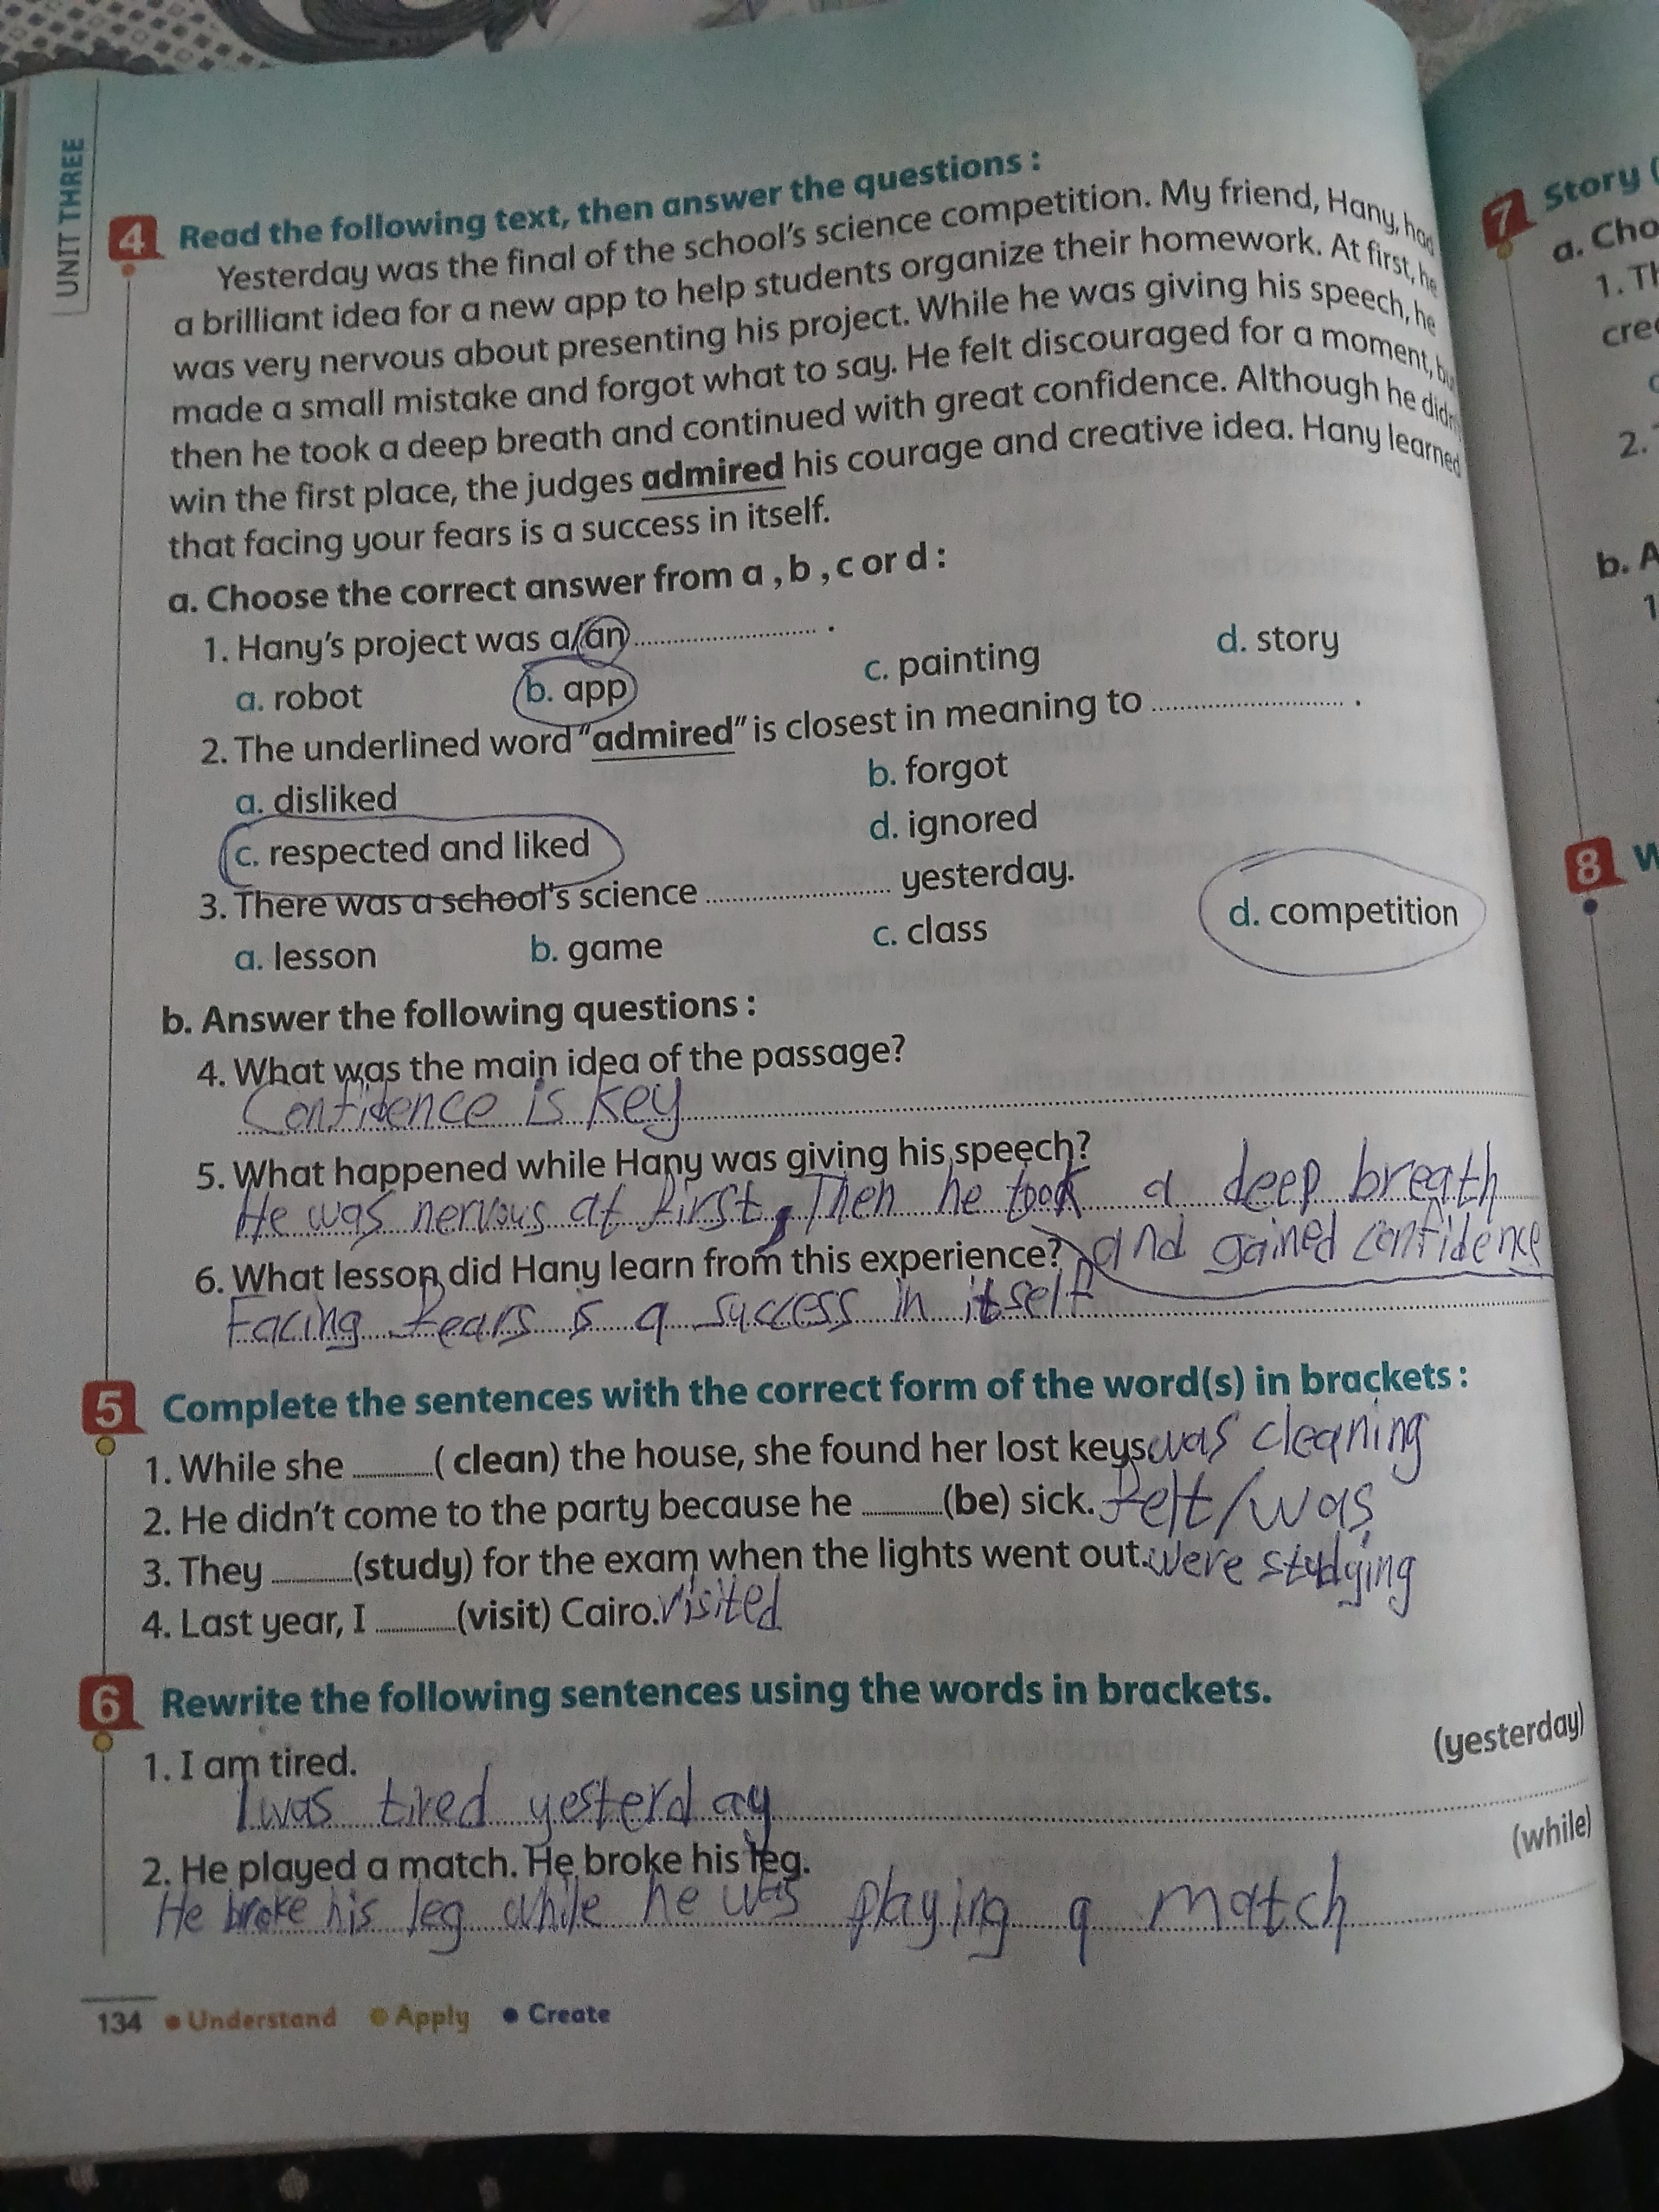 UNIT THREE
4 Read the following text, then answer the questions :
Yesterday was the final of the school's science competition. My friend, Hany, had
a brilliant idea for a new app to help students organize their homework. At first, he
was very nervous about presenting his project. While he was giving his speech, he
made a small mistake and forgot what to say. He felt discouraged for a moment,
then he took a deep breath and continued with great confidence. Although he
win the first place, the judges admired his courage and creative idea. Hany learned
that facing your fears is a success in itself.
a. Choose the correct answer from a , b , c or d :
1. Hany's project was a/an .................... .
a. robot b. app c. painting d. story
2. The underlined word "admired" is closest in meaning to .................... .
a. disliked b. forgot
c. respected and liked d. ignored
3. There was a school's science .................... yesterday.
a. lesson b. game c. class d. competition
b. Answer the following questions :
4. What was the main idea of the passage?
Confidence is key
5. What happened while Hany was giving his speech?
He was nervous at first, Then he took a deep breath
and gained confidence
6. What lesson did Hany learn from this experience?
Facing fears is a success in itself
5 Complete the sentences with the correct form of the word(s) in brackets :
1. While she ........ ( clean) the house, she found her lost keys. was cleaning
2. He didn't come to the party because he ........ (be) sick. felt/was
3. They ........ (study) for the exam when the lights went out. were studying
4. Last year, I ........ (visit) Cairo. visited
6 Rewrite the following sentences using the words in brackets.
1. I am tired. (yesterday)
I was tired yesterday
2. He played a match. He broke his leg. (while)
He broke his leg while he was playing a match
134 • Understand • Apply • Create
7 Story
a. Cho
1. Th
cre
2.
b. A
1
8 W